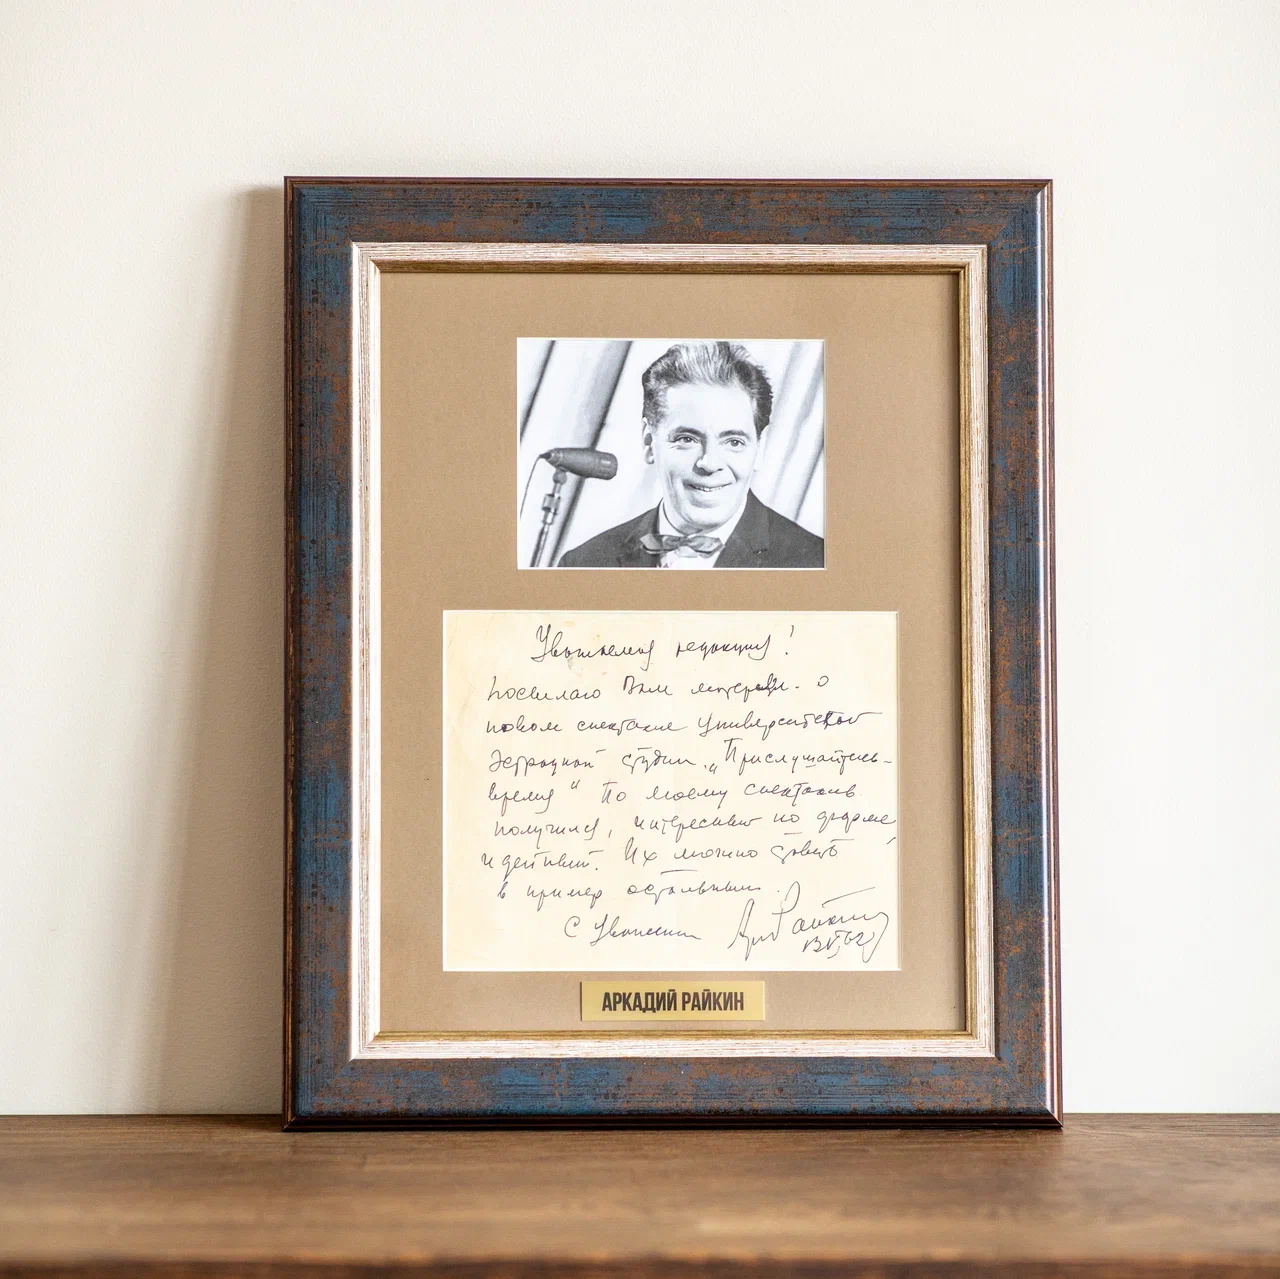 Уважаемая редакция!
Посылаю Вам матерьял о
новом спектакле Университетской
Эстрадной студии. „Прислушайтесь-
время“ По моему спектакль
получился, интересный по форме
и
Их можно ставить
в пример остальным.
С Уважением АркРайкин
АРКАДИЙ РАЙКИН